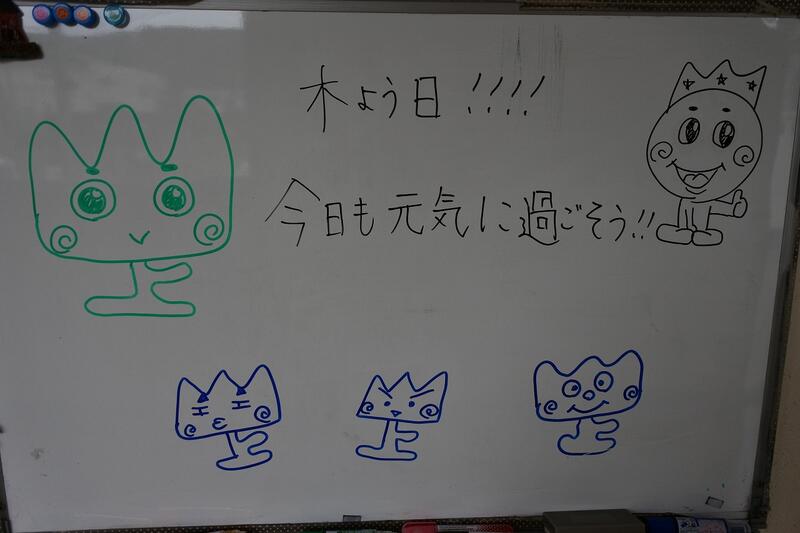 木よう日!!!!
今日も元気に過ごそう!!